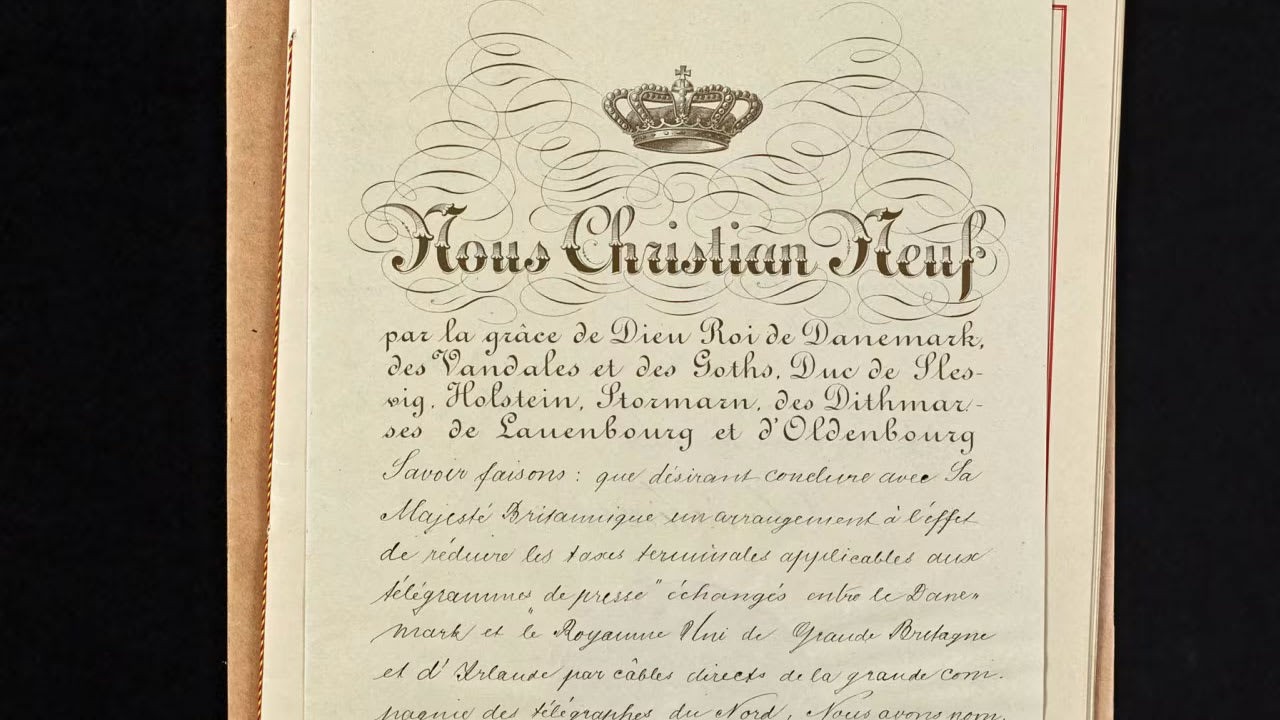 Nous Christian Neuf
par la grâce de Dieu Roi de Danemark,
des Vandales et des Goths, Duc de Sles-
vig, Holstein, Stormarn, des Dithmar-
ses de Lauenbourg et d'Oldenbourg
Savoir faisons: que désirant conclure avec Sa
Majesté Britannique un arrangement à l'effet
de réduire les taxes terminales applicables aux
télégrammes de presse" échangés entre le Dane"
mark et "le Royaume Uni de Grande Bretagne
et d'Irlande par câbles directs de la grande com-
pagnie des télégraphes du Nord, Nous avons nom,